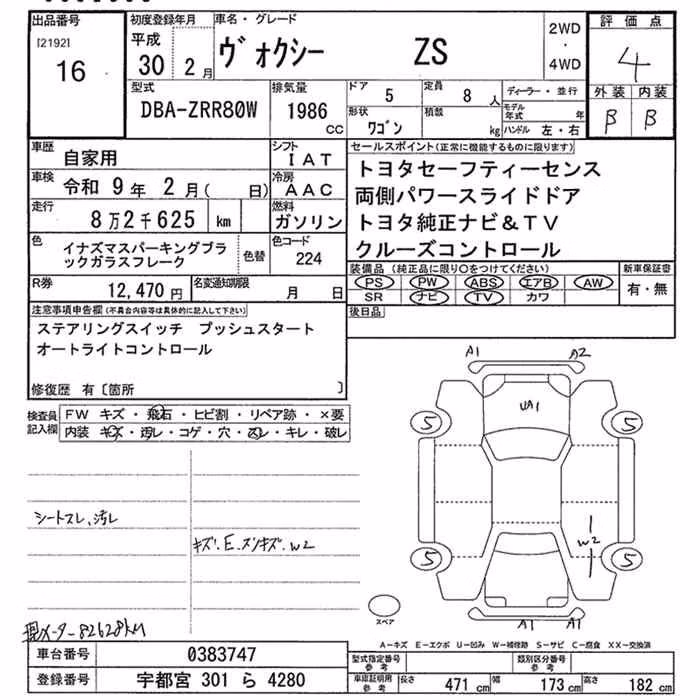 出品番号 初度登録年月 車名・グレード 評価点
[2192] 平成 2WD
16 30 2月 ヴォクシー ZS ・ 4
4WD
型式 排気量 ドア 5 定員 8人 ディーラー・並行 外装 内装
DBA-ZRR80W 1986 cc 形状 ワゴン 積載 kg モデル年式 年 B B
ハンドル 左・右
車歴 自家用 シフト IAT セールスポイント(正常に機能するものに限ります)
車検 令和 9年 2月( 日) 冷房 AAC トヨタセーフティーセンス
両側パワースライドドア
走行 8万2千625 km 燃料 ガソリン トヨタ純正ナビ&TV
クルーズコントロール
色 イナズマスパーキングブラ 色替 色コード
ックガラスフレーク 224
装備品(純正品に限り○をつけてください) 新車保証書
R券 12,470円 名変通知期限 月 日 PS PW ABS エアB AW 有・無
SR ナビ TV カワ
注意事項申告欄(不具合内容等は具体的に記入して下さい) 後日品
ステアリングスイッチ プッシュスタート
オートライトコントロール
修復歴 有〔箇所 〕
検査員記入欄 FW キズ・飛石・ヒビ割・リペア跡・×要
内装 キズ・汚レ・コゲ・穴・スレ・キレ・破レ
A1 A2
UA1
5 5
シートスレ、汚レ
キズ.E.スリキズ.W2
W2
5 5
スペア
現メーター82628km
A1 A1
A-キズ E-エクボ U-凹み W-補修跡 S-サビ C-腐食 XX-交換済
車台番号 0383747 型式指定番号 参考 類別区分番号 参考
登録番号 宇都宮 301 ら 4280 車庫証明用 参考 長さ 471cm 幅 173cm 高さ 182cm